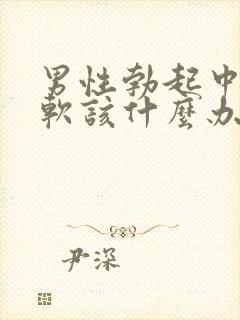 男性勃起中
軟該什麼办
尹深